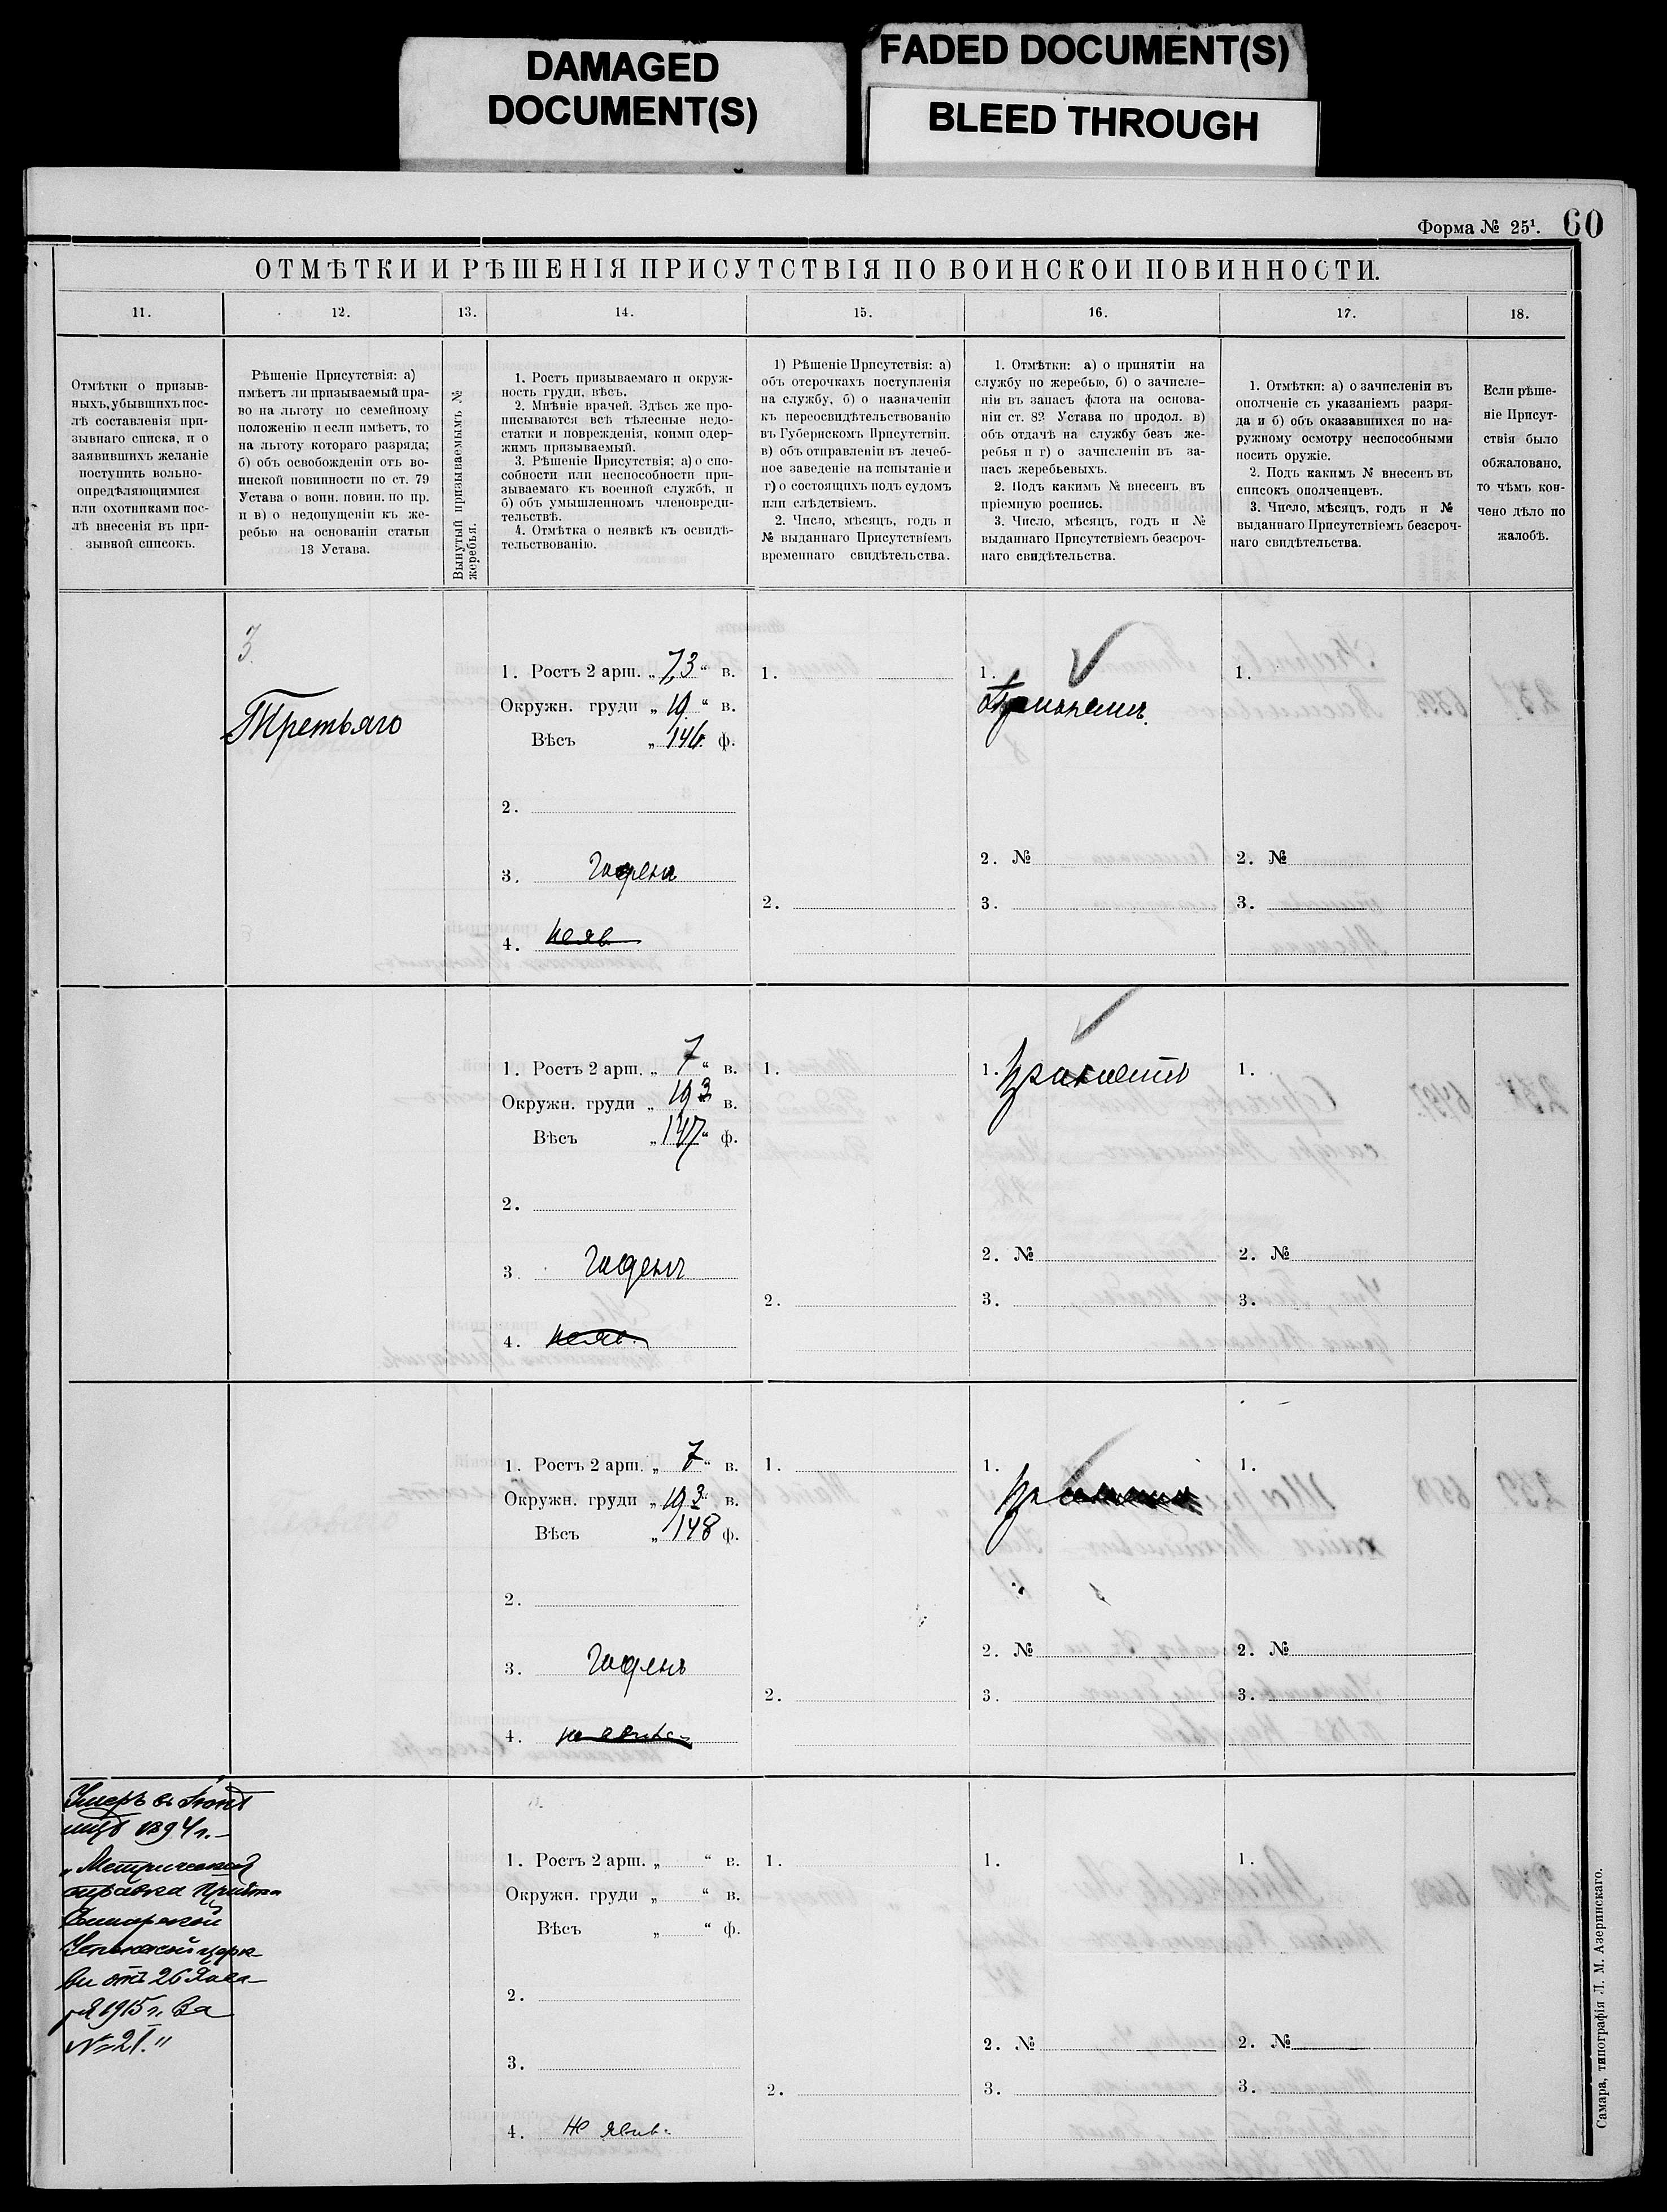 DAMAGED
DOCUMENT(S)
FADED DOCUMENT(S)
BLEED THROUGH
Форма № 25¹. 60
ОТМѢТКИ И РѢШЕНІЯ ПРИСУТСТВІЯ ПО ВОИНСКОИ ПОВИННОСТИ.
11. 12. 13. 14. 15. 16. 17. 18.
Отмѣтки о призыв-
ныхъ, убывшихъ пос-
лѣ составленія при-
зывнаго списка, и о
заявившихъ желаніе
поступить вольно-
опредѣляющимися
или охотниками пос-
лѣ внесенія въ при-
зывной списокъ.
Рѣшеніе Присутствія: а)
имѣетъ ли призываемый пра-
во на льготу по семейному
положенію и если имѣетъ, то
на льготу котораго разряда;
б) объ освобожденіи отъ во-
инской повинности по ст. 79
Устава о воин. повин. по пр.
и в) о недопущеніи къ же-
ребью на основаніи статьи
13 Устава.
Вынутый призываемымъ №
жеребья.
1. Ростъ призываемаго и окруж-
ность груди, вѣсъ.
2. Мнѣніе врачей. Здѣсь же про-
писываются всѣ тѣлесные недо-
статки и поврежденія, коими одер-
жимъ призываемый.
3. Рѣшеніе Присутствія; а) о спо-
собности или неспособности при-
зываемаго къ военной службѣ, и
б) объ умышленномъ членовреди-
тельствѣ.
4. Отмѣтка о неявкѣ къ освидѣ-
тельствованію.
1) Рѣшеніе Присутствія: а)
объ отсрочкахъ поступленія
на службу, б) о назначеніи
къ переосвидѣтельствованію
въ Губернскомъ Присутствіи.
в) объ отправленіи въ лечеб-
ное заведеніе на испытаніе и
г) о состоящихъ подъ судомъ
или слѣдствіемъ.
2. Число, мѣсяцъ, годъ и
№ выданнаго Присутствіемъ
временнаго свидѣтельства.
1. Отмѣтки: а) о принятіи на
службу по жеребью, б) о зачисле-
ніи въ запасъ флота на основа-
ніи ст. 82 Устава по продол. в)
объ отдачѣ на службу безъ же-
ребья и г) о зачисленіи въ за-
пасъ жеребьевыхъ.
2. Подъ какимъ № внесенъ въ
пріемную роспись.
3. Число, мѣсяцъ, годъ и №
выданнаго Присутствіемъ безсроч-
наго свидѣтельства.
1. Отмѣтки: а) о зачисленіи въ
ополченіе съ указаніемъ разря-
да и б) объ оказавшихся по на-
ружному осмотру неспособными
носить оружіе.
2. Подъ какимъ № внесенъ въ
списокъ ополченцевъ.
3. Число, мѣсяцъ, годъ и №
выданнаго Присутствіемъ безсроч-
наго свидѣтельства.
Если рѣше-
ніе Присут-
ствія было
обжаловано,
то чѣмъ кон-
чено дѣло по
жалобѣ.
3
Третьяго
1. Ростъ 2 арш. „ 7,3 “ в.
Окружн. груди „ 19 “ в.
Вѣсъ „ 146 ф.
2.
3. Годенъ
4. неяв.
1.
2.
1.
2. №
3.
1.
2. №
3.
1. Ростъ 2 арш. „ 7 “ в.
Окружн. груди „ 19 3 в.
Вѣсъ „ 147 “ ф.
2.
3. Годенъ
4. неяв.
1.
2.
1.
2. №
3.
1.
2. №
3.
1. Ростъ 2 арш. „ 7 “ в.
Окружн. груди „ 19 3 “ в.
Вѣсъ „ 148 ф.
2.
3. Годенъ
4. не явил.
1.
2.
1.
2. №
3.
1.
2. №
3.
Умеръ въ Іюнѣ
мцѣ 1894 г.–
„Метрическая
справка
Самарской
Успенской церк-
ви отъ 26 Янва-
ря 1915 г. за
№ 21.“
1. Ростъ 2 арш. „ “ в.
Окружн. груди „ “ в.
Вѣсъ „ “ ф.
2.
3.
4. Не явил.
1.
2.
1.
2. №
3.
1.
2. №
3.
Самара, типографія Л. М. Азеринскаго.